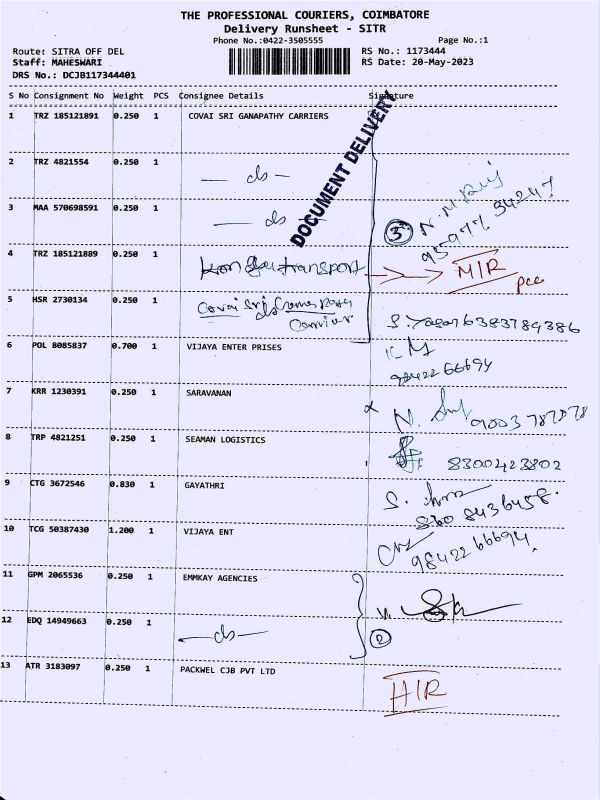 THE PROFESSIONAL COURIERS, COIMBATORE
Delivery Runsheet - SITR
Phone No.:0422-3505555 Page No.:1
Route: SITRA OFF DEL RS No.: 1173444
Staff: MAHESWARI RS Date: 20-May-2023
DRS No.: DCJB117344401
S No Consignment No Weight PCS Consignee Details Signature
1 TRZ 185121891 0.250 1 COVAI SRI GANAPATHY CARRIERS
DOCUMENT DELIVERY
2 TRZ 4821554 0.250 1 — do —
3 MAA 570698591 0.250 1 — do — 3
95977 34247
4 TRZ 185121889 0.250 1 transport M/R
5 HSR 2730134 0.250 1 Covai Sri
Carrier 6383789386
6 POL 8085837 0.700 1 VIJAYA ENTER PRISES
98422 66694
7 KRR 1230391 0.250 1 SARAVANAN x N. 9003787878
8 TRP 4821251 0.250 1 SEAMAN LOGISTICS 8300423802
9 CTG 3672546 0.830 1 GAYATHRI S.
860 8436458.
10 TCG 50387430 1.200 1 VIJAYA ENT
98422 66694.
11 GPM 2065536 0.250 1 EMMKAY AGENCIES
12 EDQ 14949663 0.250 1 — do — 2
13 ATR 3183097 0.250 1 PACKWEL CJB PVT LTD H/R